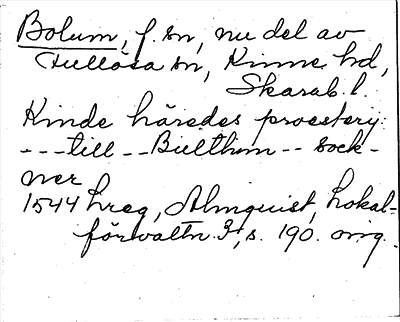 Bolum, f. sn, nu del av
Fullösa sn, Kinne hd,
Skarab. l.
Kinde häredes proestery:
---till--Bullhim--sock-
ner
1544 hreg, Almquist, Lokal-
förvaltn. 3, s. 190. orig.